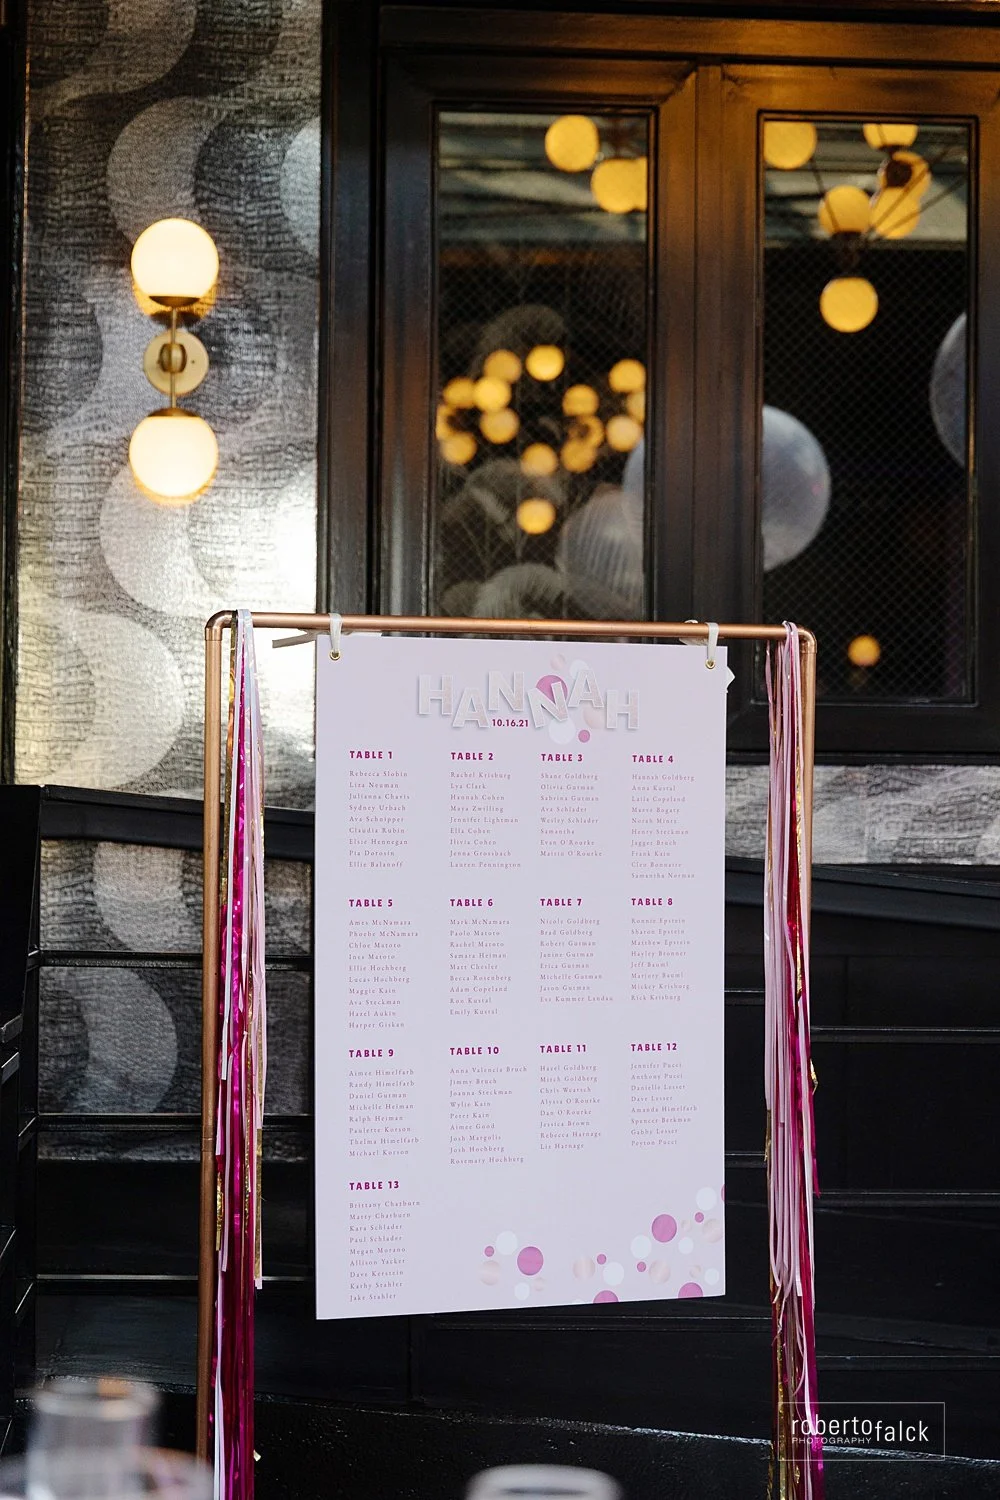 HANNAH
10.16.21
TABLE 1
Rebecca Slobin
Liza Neuman
Julianna Chavis
Sydney Urbach
Ava Schnipper
Claudia Rubin
Elsie Hennegan
Pia Dotosin
Ellie Balanoff
TABLE 2
Rachel Krisburg
Lya Clark
Hannah Cohen
Maya Zwilling
Jennifer Lightman
Ella Cohen
Ilivia Cohen
Jenna Grossbach
Lauren Pennington
TABLE 3
Shane Goldberg
Olivia Gutman
Sabrina Gutman
Ava Schlader
Wesley Schlader
Samantha
Evan O'Rourke
Maizie O'Rourke
TABLE 4
Hannah Goldberg
Anna Kustal
Laila Copeland
Maeve Bogaty
Norah Mintz
Henry Steckman
Jagger Bruch
Frank Kain
Cleo Bonnaire
Samantha Norman
TABLE 5
Ames McNamara
Phoebe McNamara
Chloe Matoto
Ines Matoto
Ellie Hochberg
Lucas Hochberg
Maggie Kain
Ava Steckman
Hazel Aukin
Harper Giskan
TABLE 6
Mark McNamara
Paolo Matoto
Rachel Matoto
Samara Heiman
Matt Chesler
Becca Rosenberg
Adam Copeland
Ron Kustal
Emily Kustal
TABLE 7
Nicole Goldberg
Brad Goldberg
Robert Gutman
Janine Gutman
Erica Gutman
Michelle Gutman
Jason Gutman
Eve Kummer Landau
TABLE 8
Ronnie Epstein
Sharon Epstein
Matthew Epstein
Hayley Bronner
Jeff Bauml
Marjory Bauml
Mickey Krisburg
Rick Krisburg
TABLE 9
Aimee Himelfarb
Randy Himelfarb
Daniel Gutman
Michelle Heiman
Ralph Heiman
Paulette Korson
Thelma Himelfarb
Michael Korson
TABLE 10
Anna Valencia Bruch
Jimmy Bruch
Joanna Steckman
Wylie Kain
Peter Kain
Aimee Good
Josh Margolis
Josh Hochberg
Rosemary Hochberg
TABLE 11
Hazel Goldberg
Mitch Goldberg
Chris Weatsch
Alyssa O'Rourke
Dan O'Rourke
Jessica Brown
Rebecca Harnage
Liz Harnage
TABLE 12
Jennifer Pucci
Anthony Pucci
Danielle Lesser
Dave Lesser
Amanda Himelfarb
Spencer Berkman
Gabbe Lesser
Peyton Pucci
TABLE 13
Brittany Chatburn
Matty Chatburn
Kara Schlader
Paul Schlader
Megan Morano
Allison Yacker
Dave Kerstein
Kathy Stahler
Jake Stahler
robertofalck
PHOTOGRAPHY